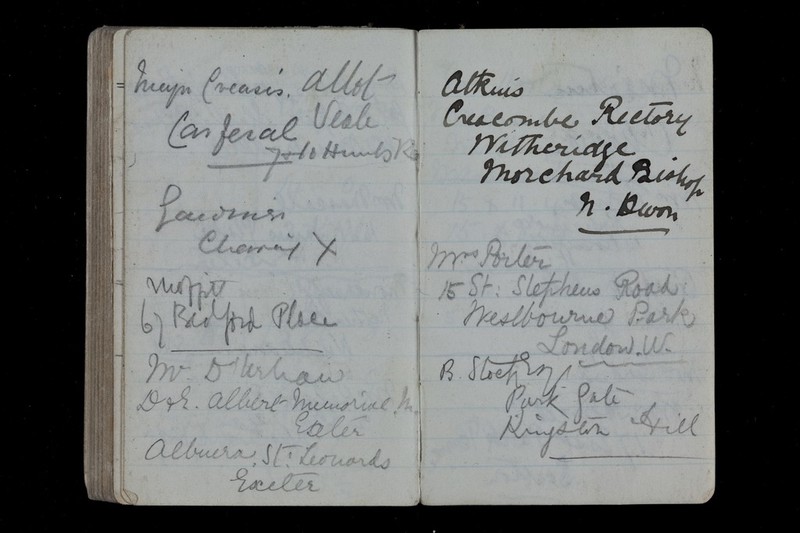 Major Creasis. Allot
Carferal Veale
to Hunts
Gardiner
Charing X
Moffitt
67 Bedford Place
Mr D'Urban
D & E. Albert Memorial M.
Exeter
Albuera. St. Leonards
Exeter
Atkins
Creacombe Rectory
Witheridge
Morchard Bishop
N. Devon
Mrs Porter
15 St: Stephens Road
Westbourne Park
London. W.
B. Stock Esq
Park Gate
Kingston Hill